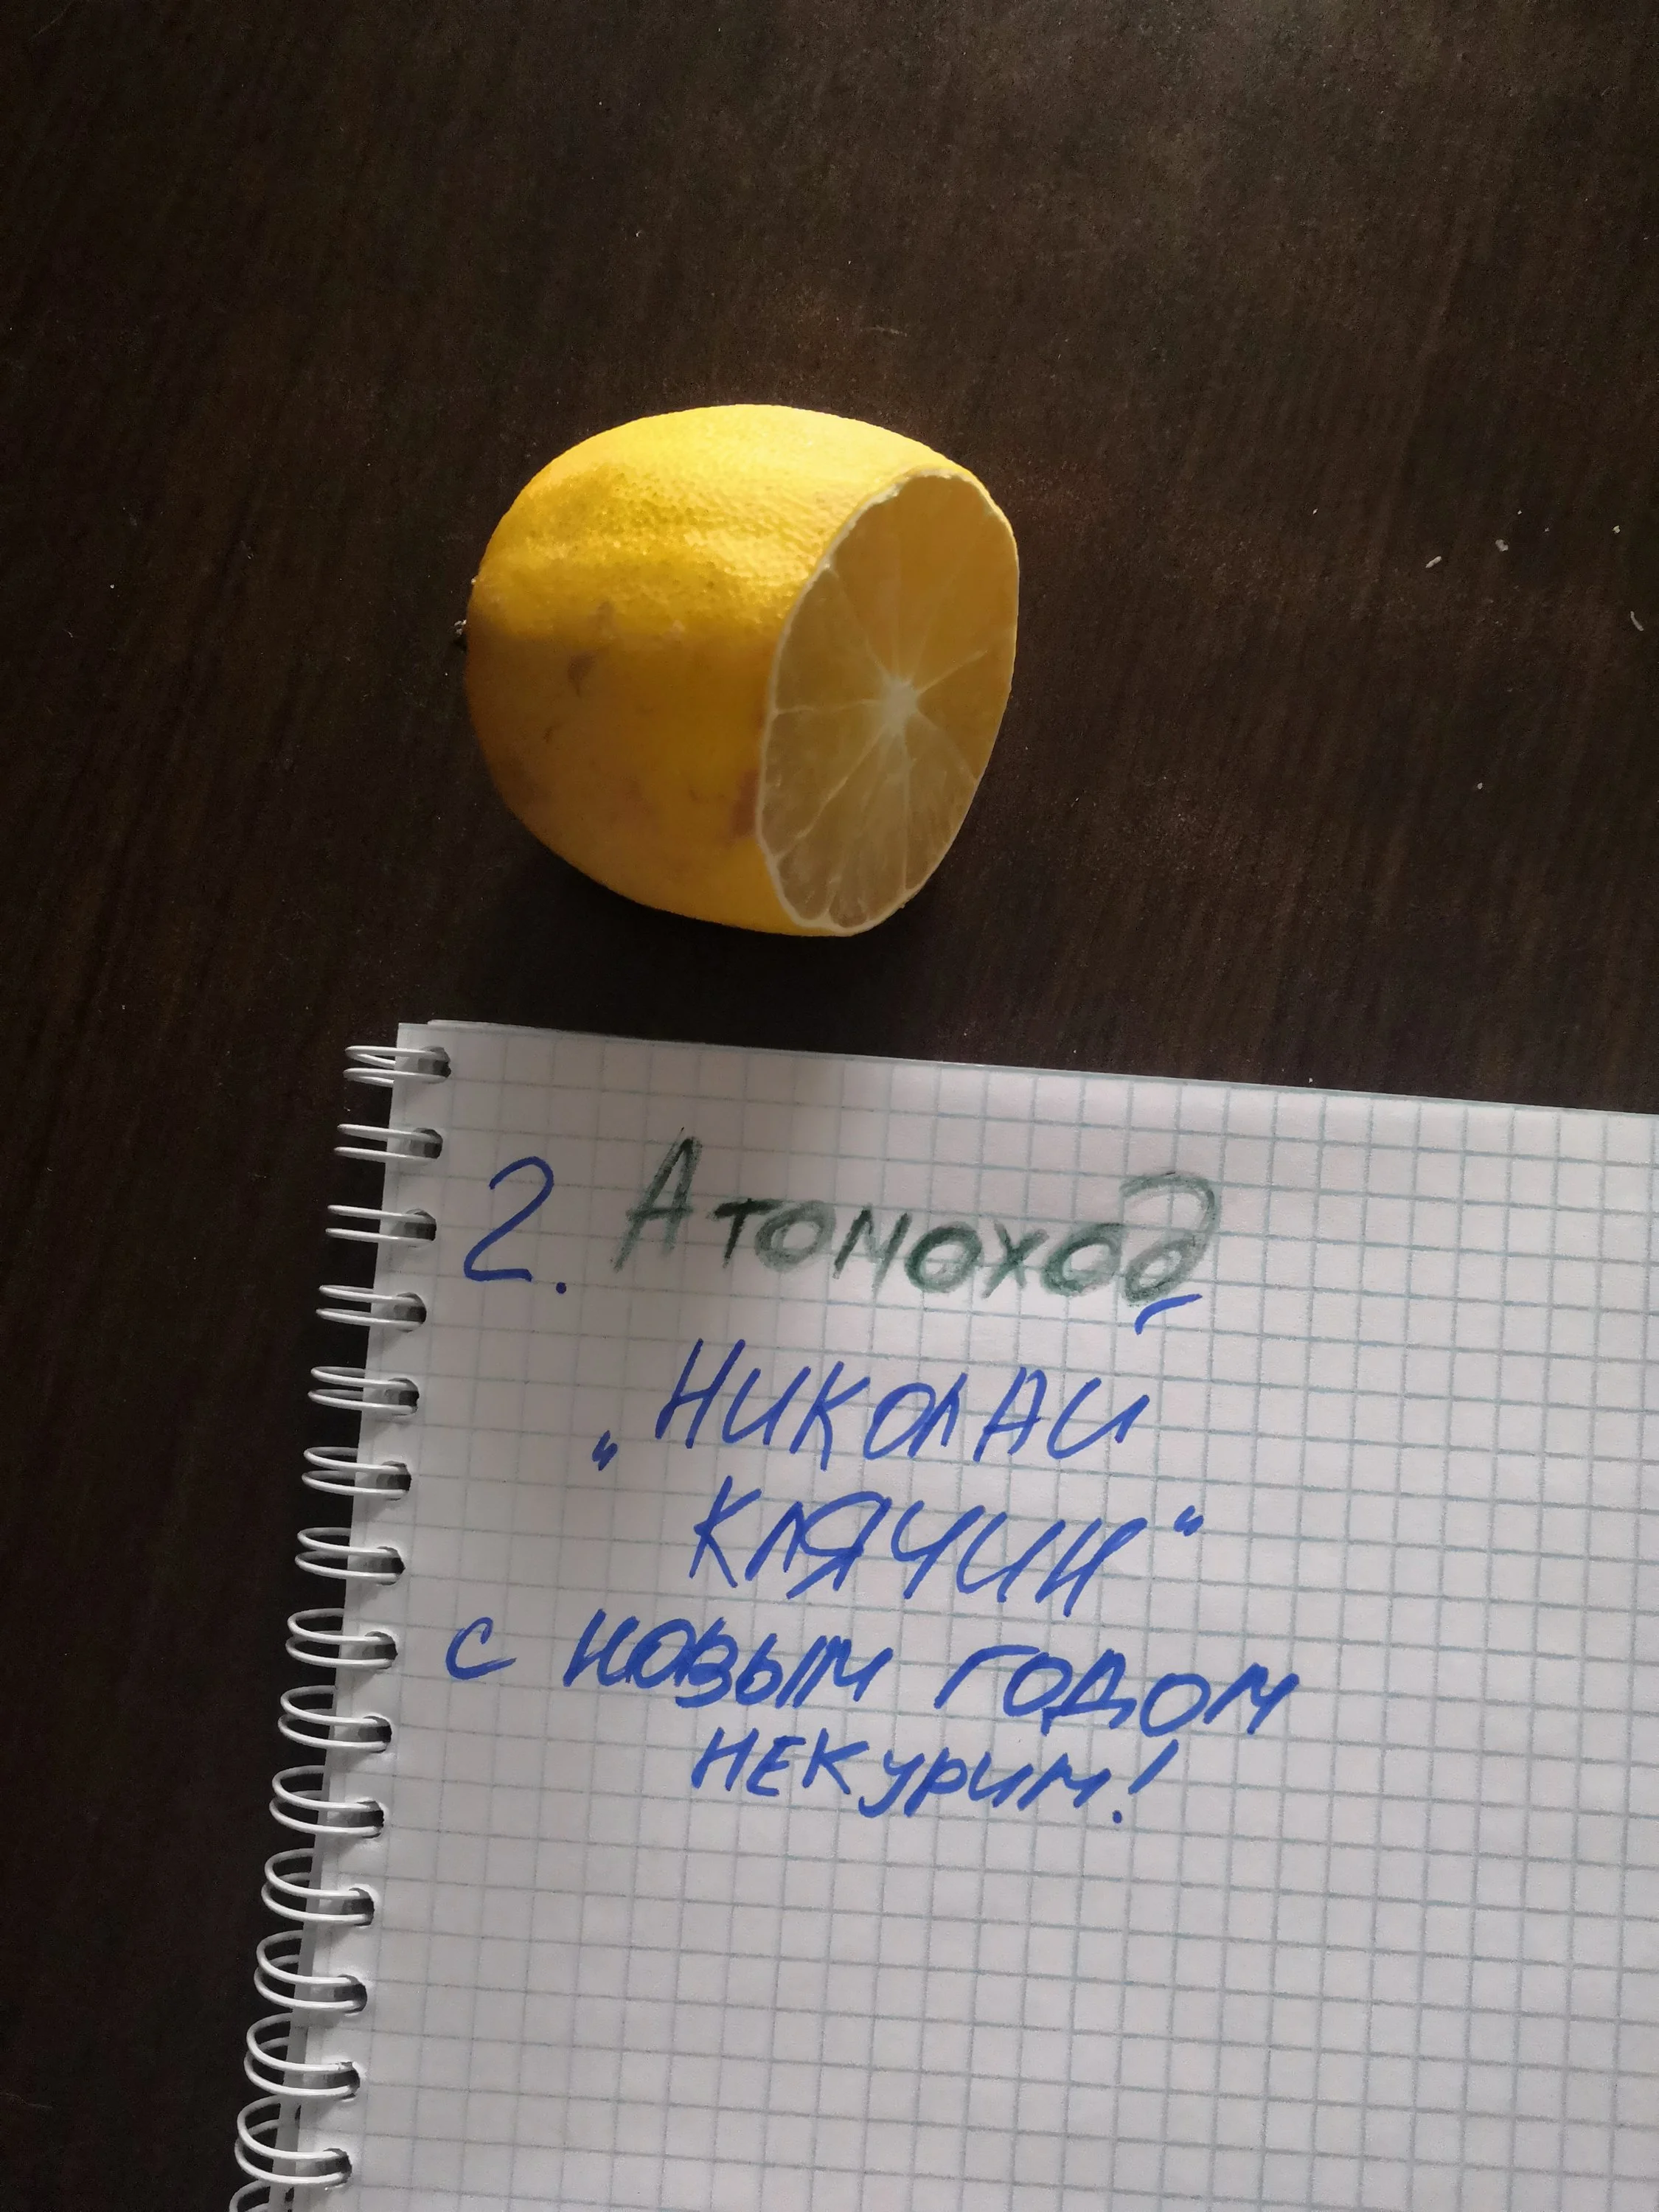 2. Атомоход
„НИКОЛАЙ
КЛЯЧИН“
с новым годом
НЕКУРИМ!